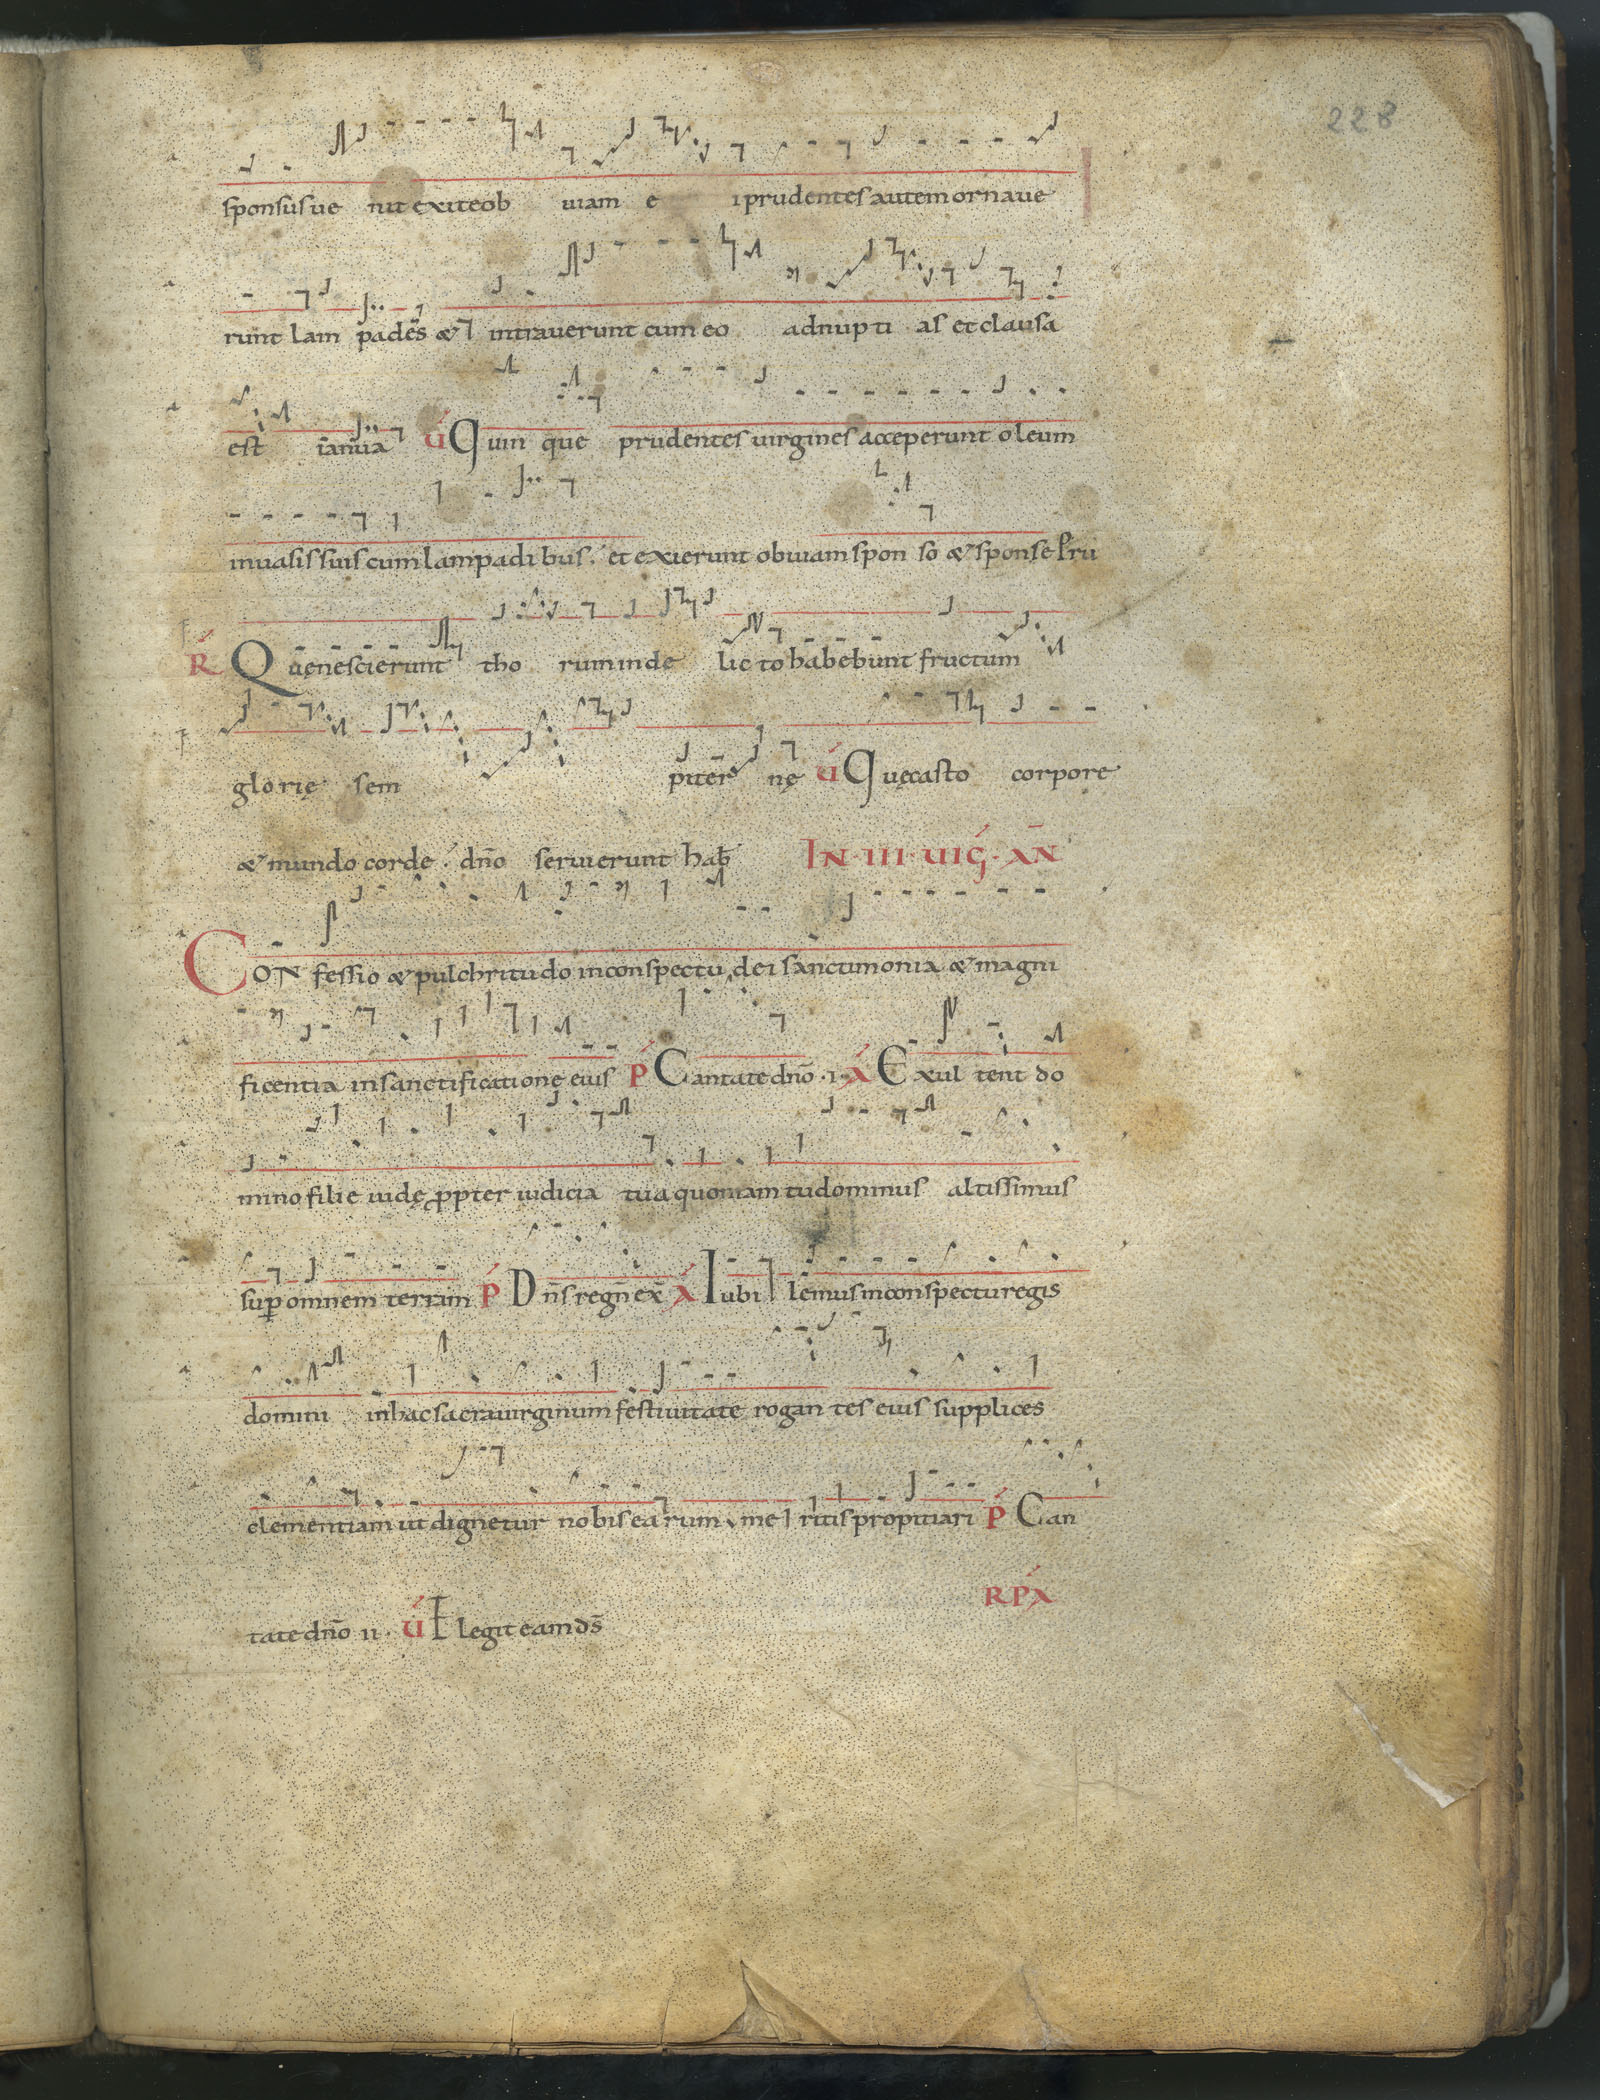 228
sponsus ue nit exite ob uiam e i prudentes autem ornaue
runt lam pades & intrauerunt cum eo ad nupti as et clausa
est ianua V́ Quin que prudentes uirgines acceperunt oleum
in uasis suis cum lampadi bus. et exierunt obuiam spon so & sponse Pru
R Quę nescierunt tho rum in de lic to habebunt fructum
glorię sem piter nę V́ Quę casto corpore
& mundo corde dño seruierunt hab̄ IN III UIĠ AN̄
CON fessio & pulchritudo in conspectu dei sanctimonia & magni
ficentia in sanctificatione eius P Cantate dño i A Exul tent do
mino filie iudę ꝓpter iudicia tua quoniam tu dominus altissimus
suꝑ omnem terram P Dn̄s regn̄ ex̄ A Iubi lemus in conspectu regis
domini in hac sacra uirginum festiuitate rogan tes eius supplices
clementiam ut dignetur nobis earum me ritis propitiari P Can
RPA
tate dño ii V́ Elegit eam ds̄